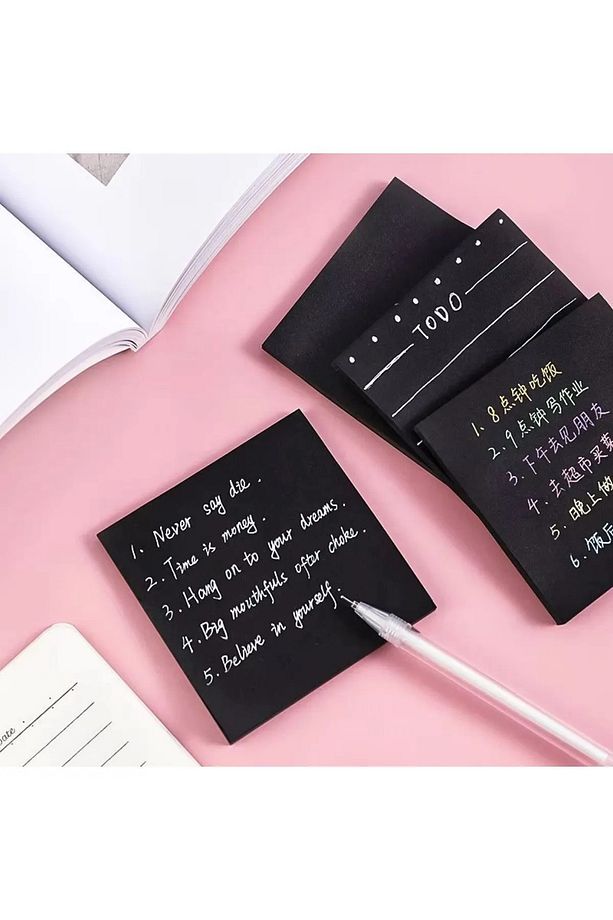 1. Never say die.
2. Time is money.
3. Hang on to your dreams.
4. Big mouthfuls ofter choke.
5. Believe in yourself.
TODO
1. 8点钟吃饭
2. 9点钟写作业
3. 下午去见朋友
4. 去超市买菜
5. 晚上做
6. 饭后
Date